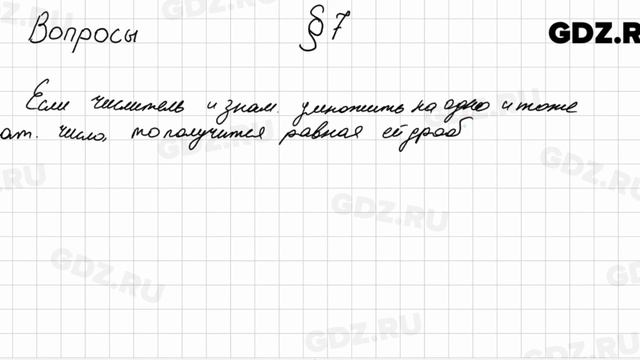 Вопросы § 7
GDZ.RU
Если числитель и знам. умножить на одно и тоже
нат. число, то получится равная ей дроб
GDZ.RU
GDZ.RU
GDZ.RU
GDZ.RU
GDZ.RU
GDZ.RU